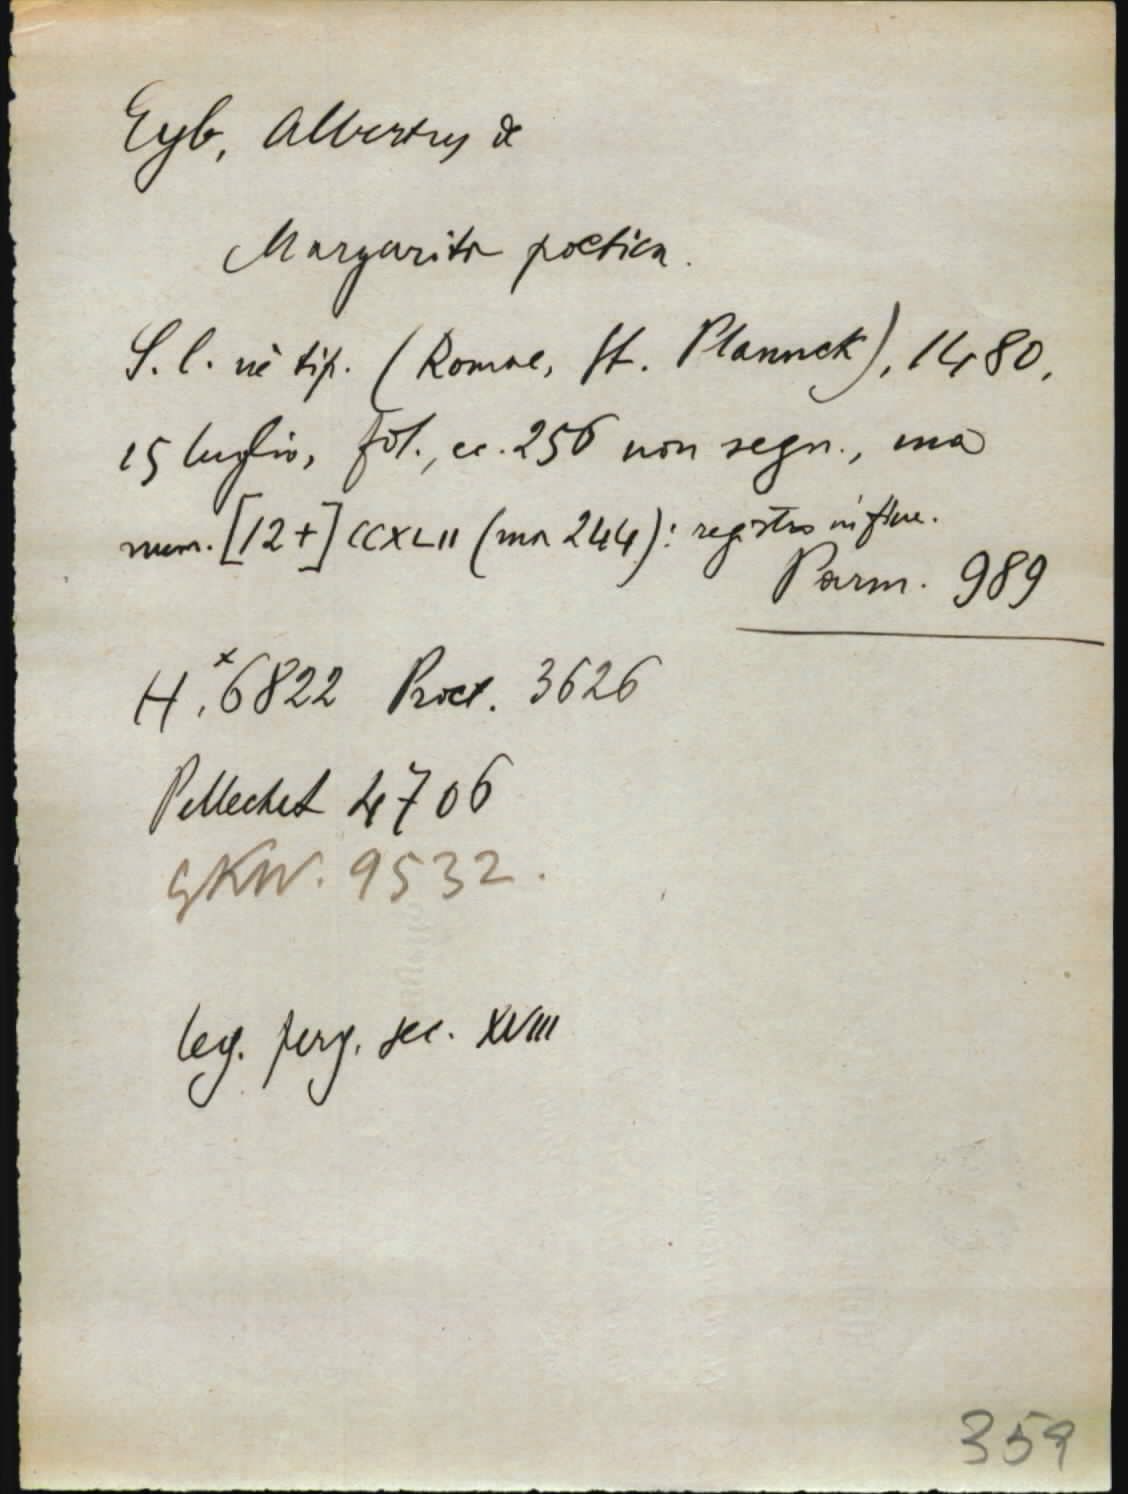 Eyb, Albertus de
Margarita poetica.
S. l. nè tip. (Romae, St. Plannck), 1480,
15 luglio, fol., cc. 256 non segn., ma
num. [12+] CCXLII (ma 244): registro in fine.
Parm. 989
H. x6822 Proct. 3626
Pellechet 4706
GKW. 9532.
leg. perg. sec. XVIII
359